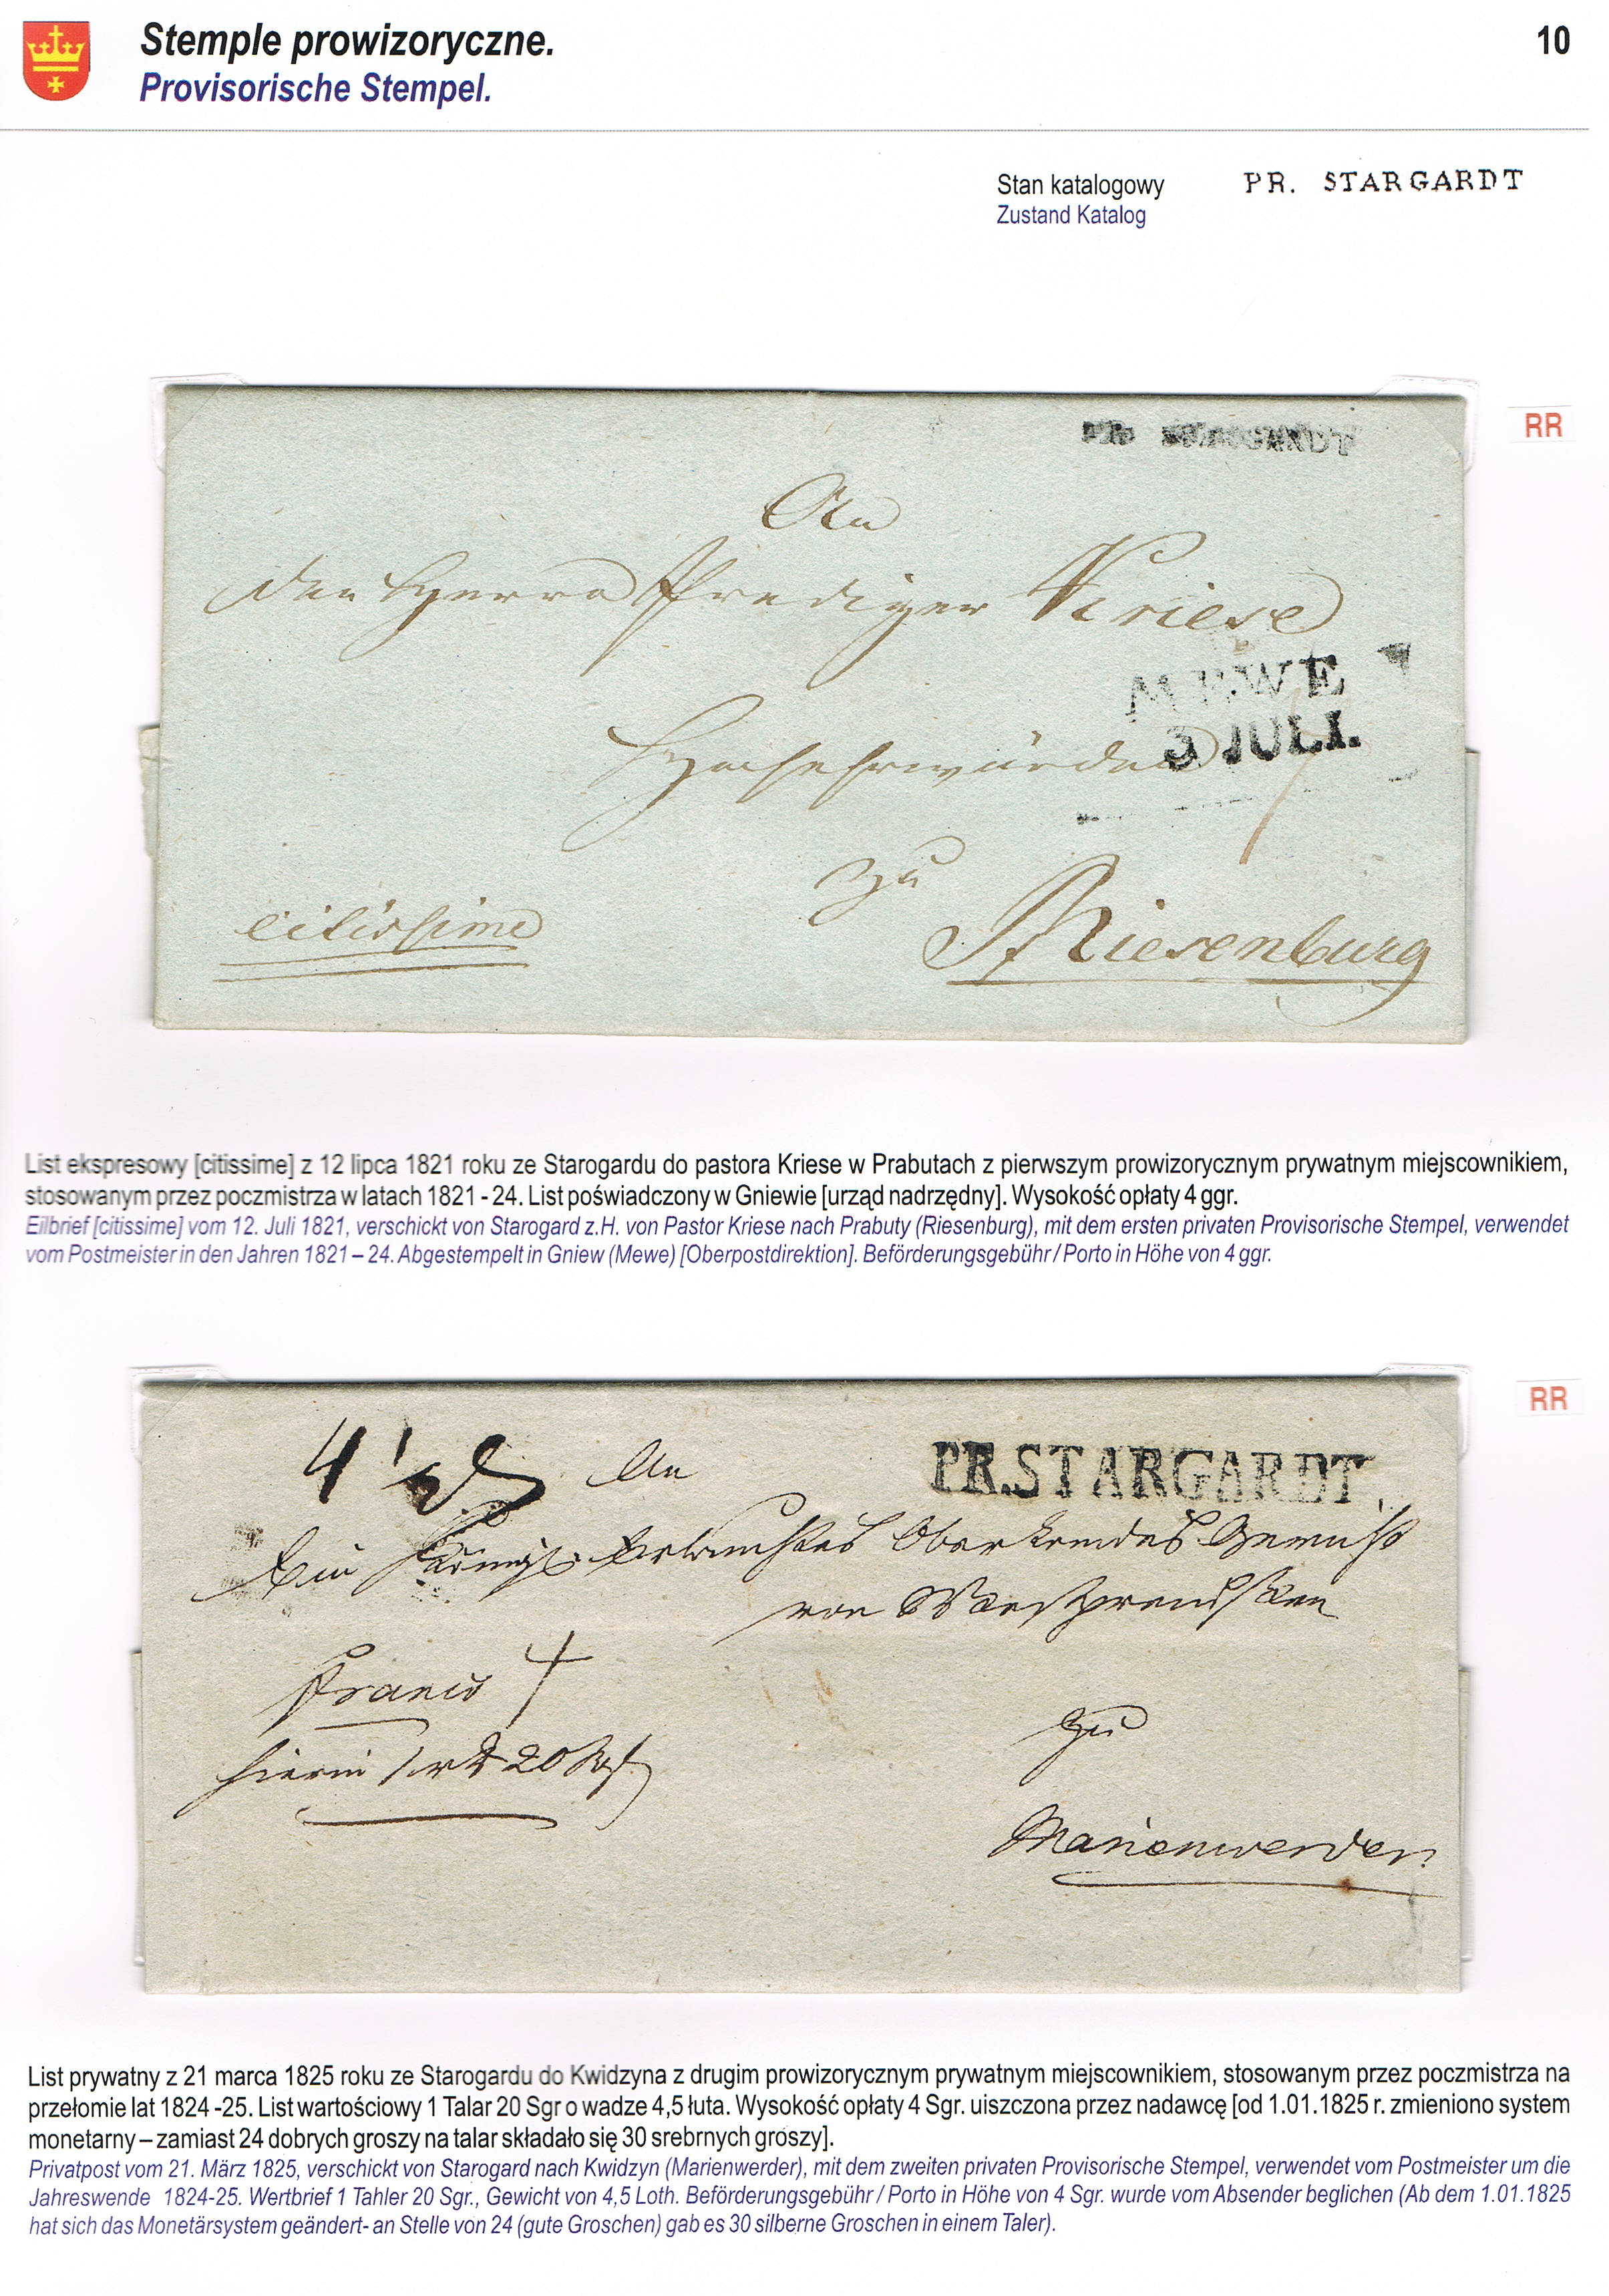 Stemple prowizoryczne.
Provisorische Stempel.
10
Stan katalogowy
Zustand Katalog
PR. STARGARDT
RR
PR STARGARDT
An
den Herrn Prediger Kriese
MEWE
3 JULI.
Hochehrwürden
zu
citissime
Riesenburg
List ekspresowy [citissime] z 12 lipca 1821 roku ze Starogardu do pastora Kriese w Prabutach z pierwszym prowizorycznym prywatnym miejscownikiem,
stosowanym przez poczmistrza w latach 1821 - 24. List poświadczony w Gniewie [urząd nadrzędny]. Wysokość opłaty 4 ggr.
Eilbrief [citissime] vom 12. Juli 1821, verschickt von Starogard z.H. von Pastor Kriese nach Prabuty (Riesenburg), mit dem ersten privaten Provisorische Stempel, verwendet
vom Postmeister in den Jahren 1821 – 24. Abgestempelt in Gniew (Mewe) [Oberpostdirektion]. Beförderungsgebühr / Porto in Höhe von 4 ggr.
RR
4 1/2
An
PR. STARGARDT
Ein Königl. Oberlandes Gericht
von Westpreussen
Franco 4
zu
hierin 1 rt 20 Sgr
Marienwerder
List prywatny z 21 marca 1825 roku ze Starogardu do Kwidzyna z drugim prowizorycznym prywatnym miejscownikiem, stosowanym przez poczmistrza na
przełomie lat 1824 -25. List wartościowy 1 Talar 20 Sgr o wadze 4,5 łuta. Wysokość opłaty 4 Sgr. uiszczona przez nadawcę [od 1.01.1825 r. zmieniono system
monetarny – zamiast 24 dobrych groszy na talar składało się 30 srebrnych groszy].
Privatpost vom 21. März 1825, verschickt von Starogard nach Kwidzyn (Marienwerder), mit dem zweiten privaten Provisorische Stempel, verwendet vom Postmeister um die
Jahreswende 1824-25. Wertbrief 1 Tahler 20 Sgr., Gewicht von 4,5 Loth. Beförderungsgebühr / Porto in Höhe von 4 Sgr. wurde vom Absender beglichen (Ab dem 1.01.1825
hat sich das Monetärsystem geändert- an Stelle von 24 (gute Groschen) gab es 30 silberne Groschen in einem Taler).